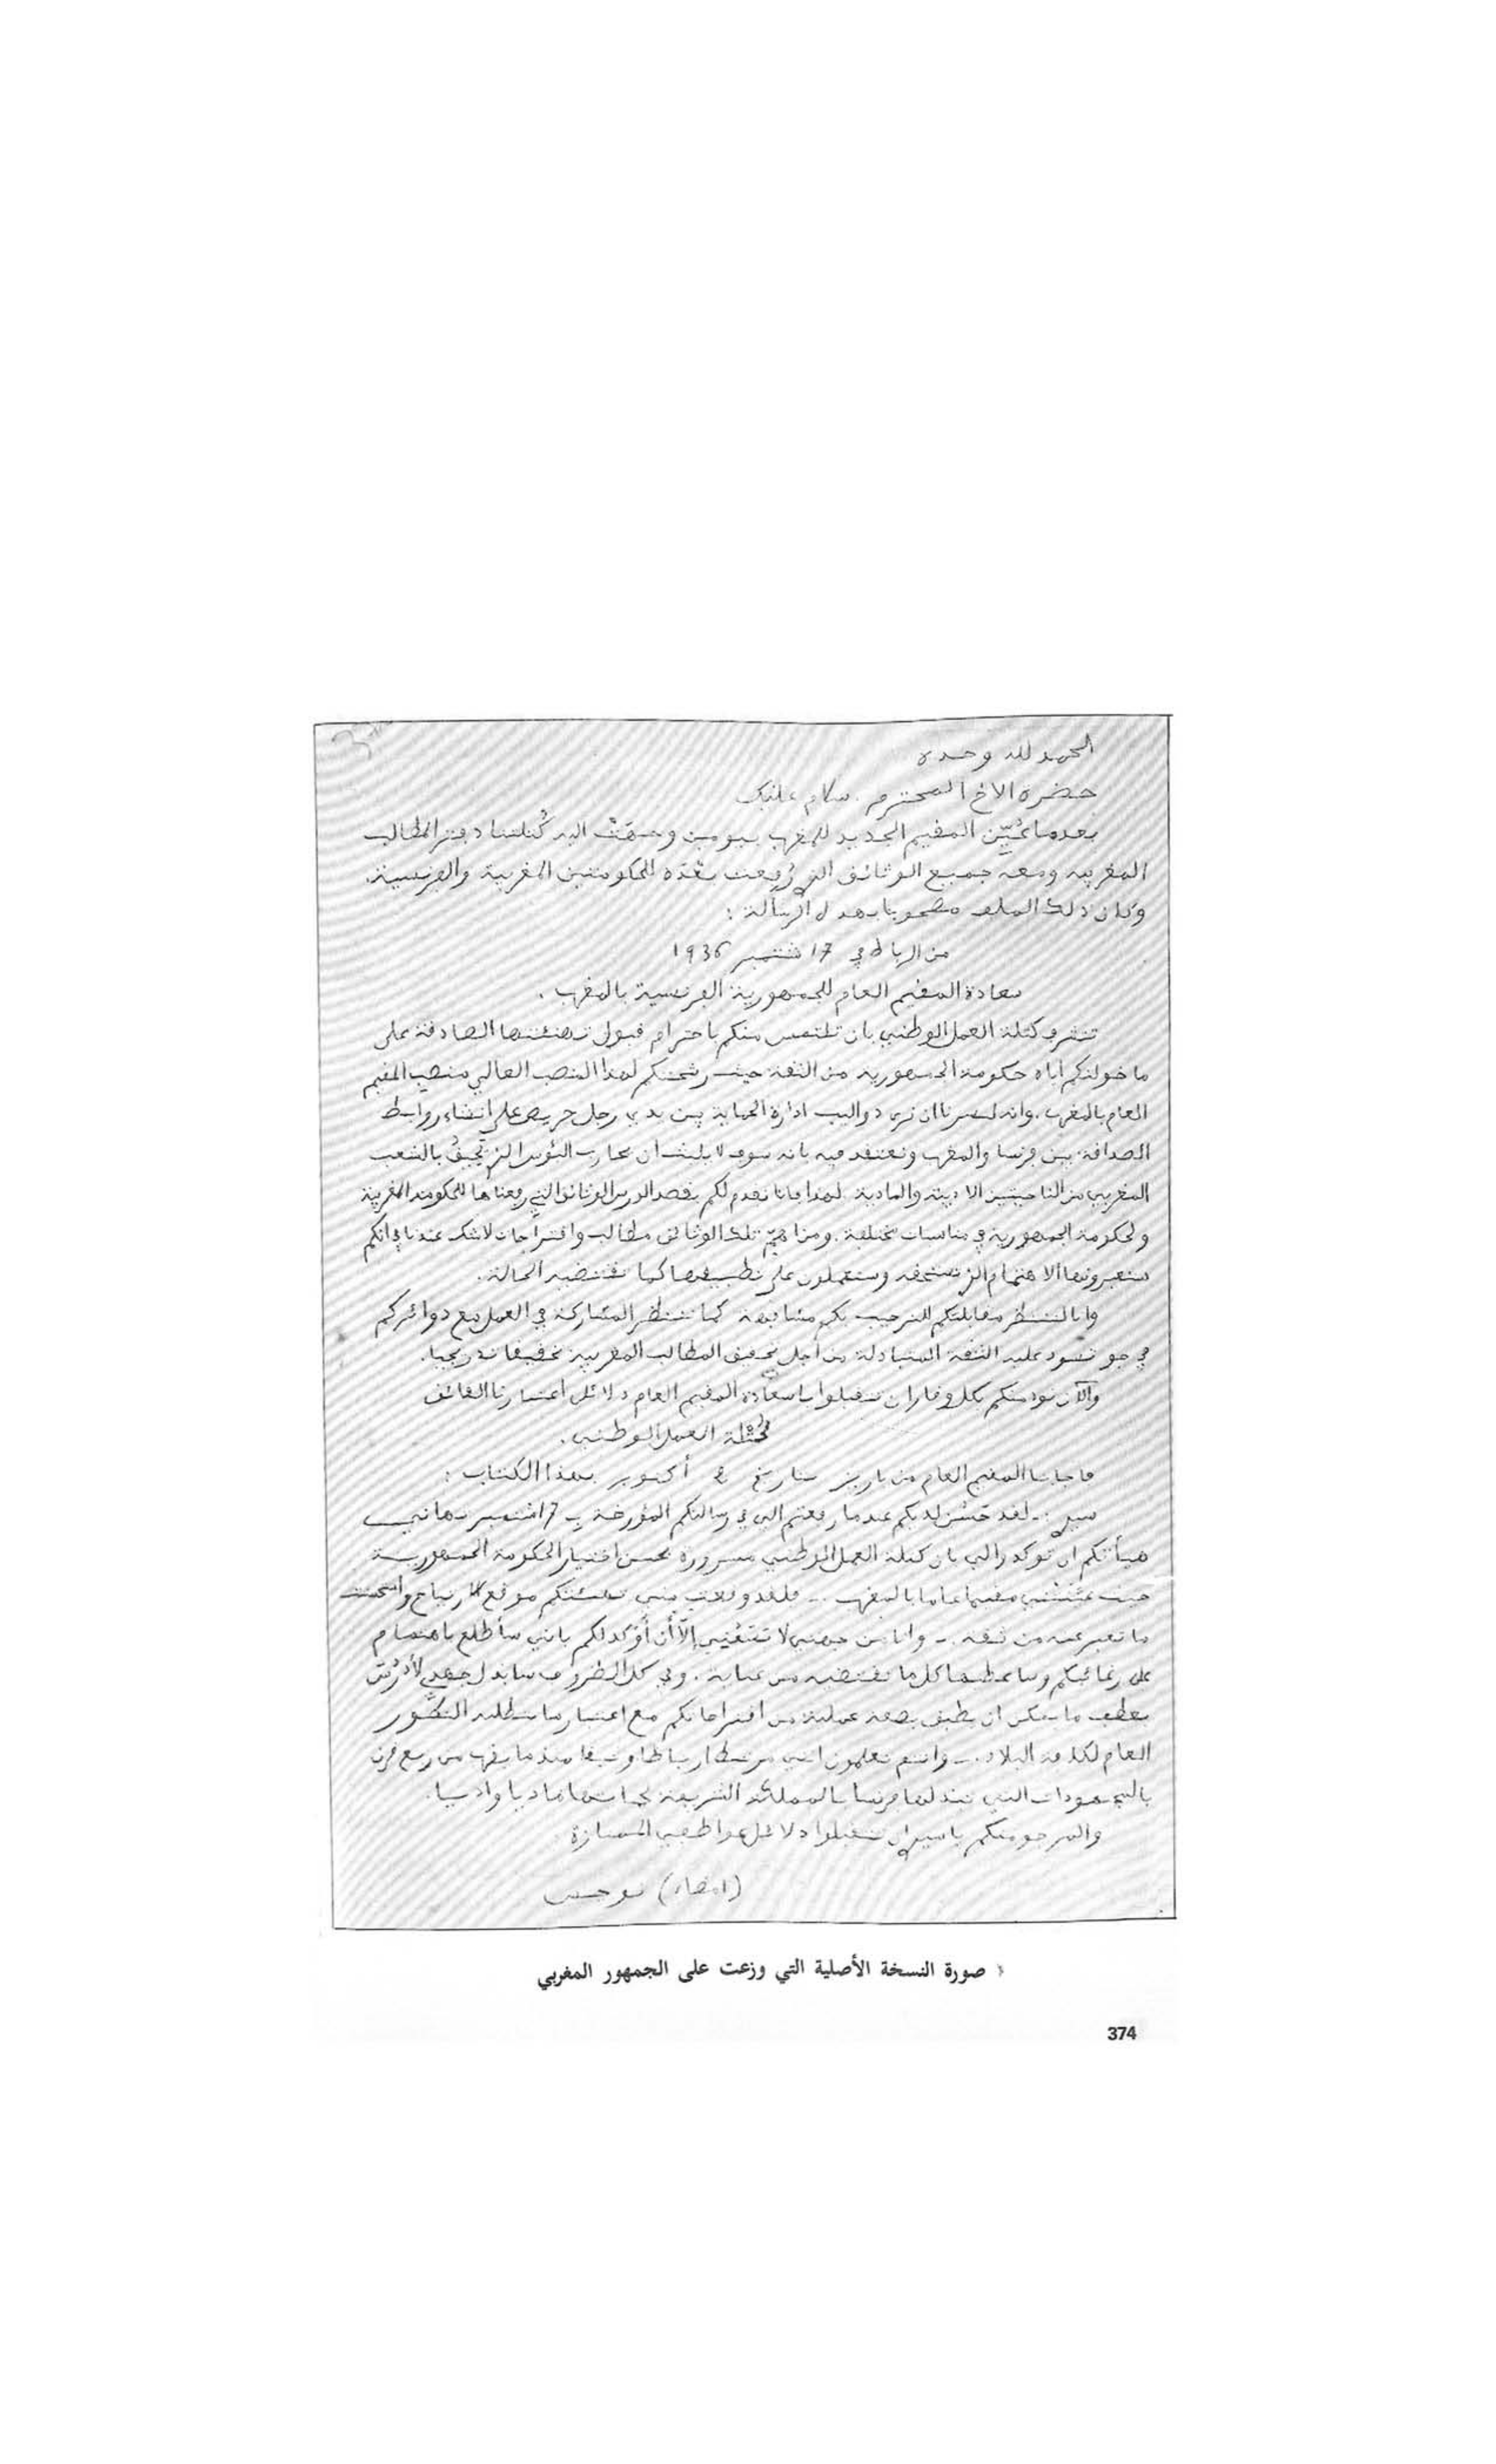 الحمد لله وحده
حضرة الاخ المحترم . سلام عليك
بعدما عُيِّن المقيم الجديد للمغرب بيومين وجهت اليه كُتلتنا دفتر المطالب
المغربية ومعه جميع الوثائق التي رُفِعت بعْدَه للحكومتين المغربية والفرنسية.
وكان ذلك الملف مصحوبا بهذه الرسالة :
من الرباط في 17 شتنبر 1936
سعادة المقيم العام للجمهورية الفرنسية بالمغرب .
تتشرف كتلة العمل الوطني بان تلتمس منكم باحترام قبول تهنئتها الصادقة على
ما خولتكم اياه حكومة الجمهورية من الثقة حيث رشحتكم لهذا المنصب العالي منصب المقيم
العام بالمغرب . وانه ليسرنا ان نرى دواليب ادارة الحماية بين يدي رجل حريص على انشاء روابط
الصداقة بين فرنسا والمغرب ونعتقد فيه بانه سوف لا يلبث ان يحارب البؤس الذي يحيق بالشعب
المغربي من الناحيتين الادبية والمادية . لهذا فانا نقدم لكم بقصد الدرس الوثائق التي رفعناها للحكومة المغربية
ولحكومة الجمهورية في مناسبات مختلفة . تلك الوثائق مطالب واقتراحات لا شك عندنا في انكم
ستعيرونها الاهتمام الذي تستحقه وستعملون على تطبيقها كما تقتضيه الحالة .
وانا لننتظر مقابلتكم للترحيب بكم مشابهة كما ننتظر المشاركة في العمل مع دوائركم
في جو تسود عليه الثقة المتبادلة من اجل تحقيق المطالب المغربية تحقيقا تدريجيا .
والآن نود منكم بكل وقار ان تتقبلوا يا سعادة المقيم العام دلائل اعتبارنا الفائق
كُتْلة العمل الوطني .
فاجابنا المقيم العام من باريز بتاريخ أكتوبر بهذا الكتاب :
سيدي :- لقد حَسُن لديكم عندما رفعتم الي في رسالتكم المؤرخة بـ 17 شتنبر تهاني
هيأتكم ان توكدوا لي بان كتلة العمل الوطني مسرورة بحسن اختيار الحكومة الجمهورية
حيث عيَّنَتْني مقيما عاما بالمغرب .- فلقد وقعت مني تهنئتكم موقع الارتياح واستحسنت
ما تعبر عنه من ثقة .- وانا من جهتي لا يسَعُني إلّا أن أؤكد لكم باني سأطلع باهتمام
على رغائبكم وساعطيها كل ما تقتضيه من عناية . وفي كل الظروف سابذل جهدي لأدرُسَ
بعطف ما يمكن ان يطبق بصفة عملية من اقتراحاتكم مع اعتبار ما يتطلبه التطَوُّر
العام لكافة البلاد .- وانتم تعلمون انني مرتبط ارتباطا وثيقا منذ ما يقرب من ربع قرن
بالمجهودات التي تبذلها فرنسا بالمملكة الشريفة ماديا وادبيا .
والمرجو منكم يا سيدي ان تتقبلوا دلائل عواطفي الممتازة
(امضاء) نوجيس
صورة النسخة الأصلية التي وزعت على الجمهور المغربي
374